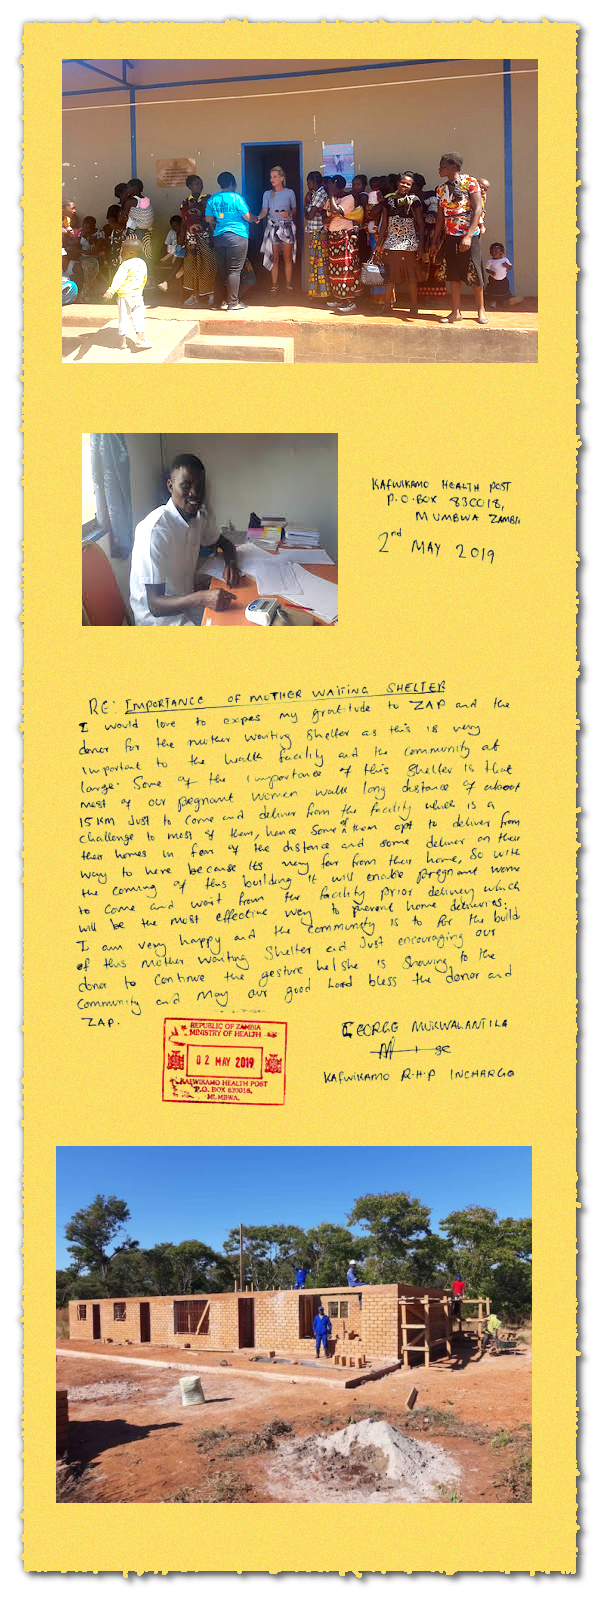 KAFWIKAMO HEALTH POST
P.O. BOX 830018,
MUMBWA ZAMBIA
2nd MAY 2019
RE: IMPORTANCE OF MOTHER WAITING SHELTER
I would love to expes my gratitude to ZAP and the
donor for the mother waiting shelter as this is very
important to the health facility and the community at
large. Some of the importance of this shelter is that
most of our pregnant women walk long distance of about
15 KM Just to come and deliver from the facility which is a
challenge to most of them, hence some of them opt to deliver from
their homes in fear of the distance and some deliver on their
way to here because its very far from their home, So with
the coming of this building it will enable pregnant women
to come and wait from the facility prior delivery which
will be the most effective way to prevent home deliveries.
I am very happy and the community is to for the build
of this mother waiting Shelter and Just encouraging our
donor to continue the gesture he/she is showing to the
community and may our good Lord bless the donor and
ZAP.
GEORGE MUKWALANTILA
KAFWIKAMO R.H.P INCHARGE
REPUBLIC OF ZAMBIA
MINISTRY OF HEALTH
02 MAY 2019
KAFWIKAMO HEALTH POST
P.O. BOX 830018,
MUMBWA.